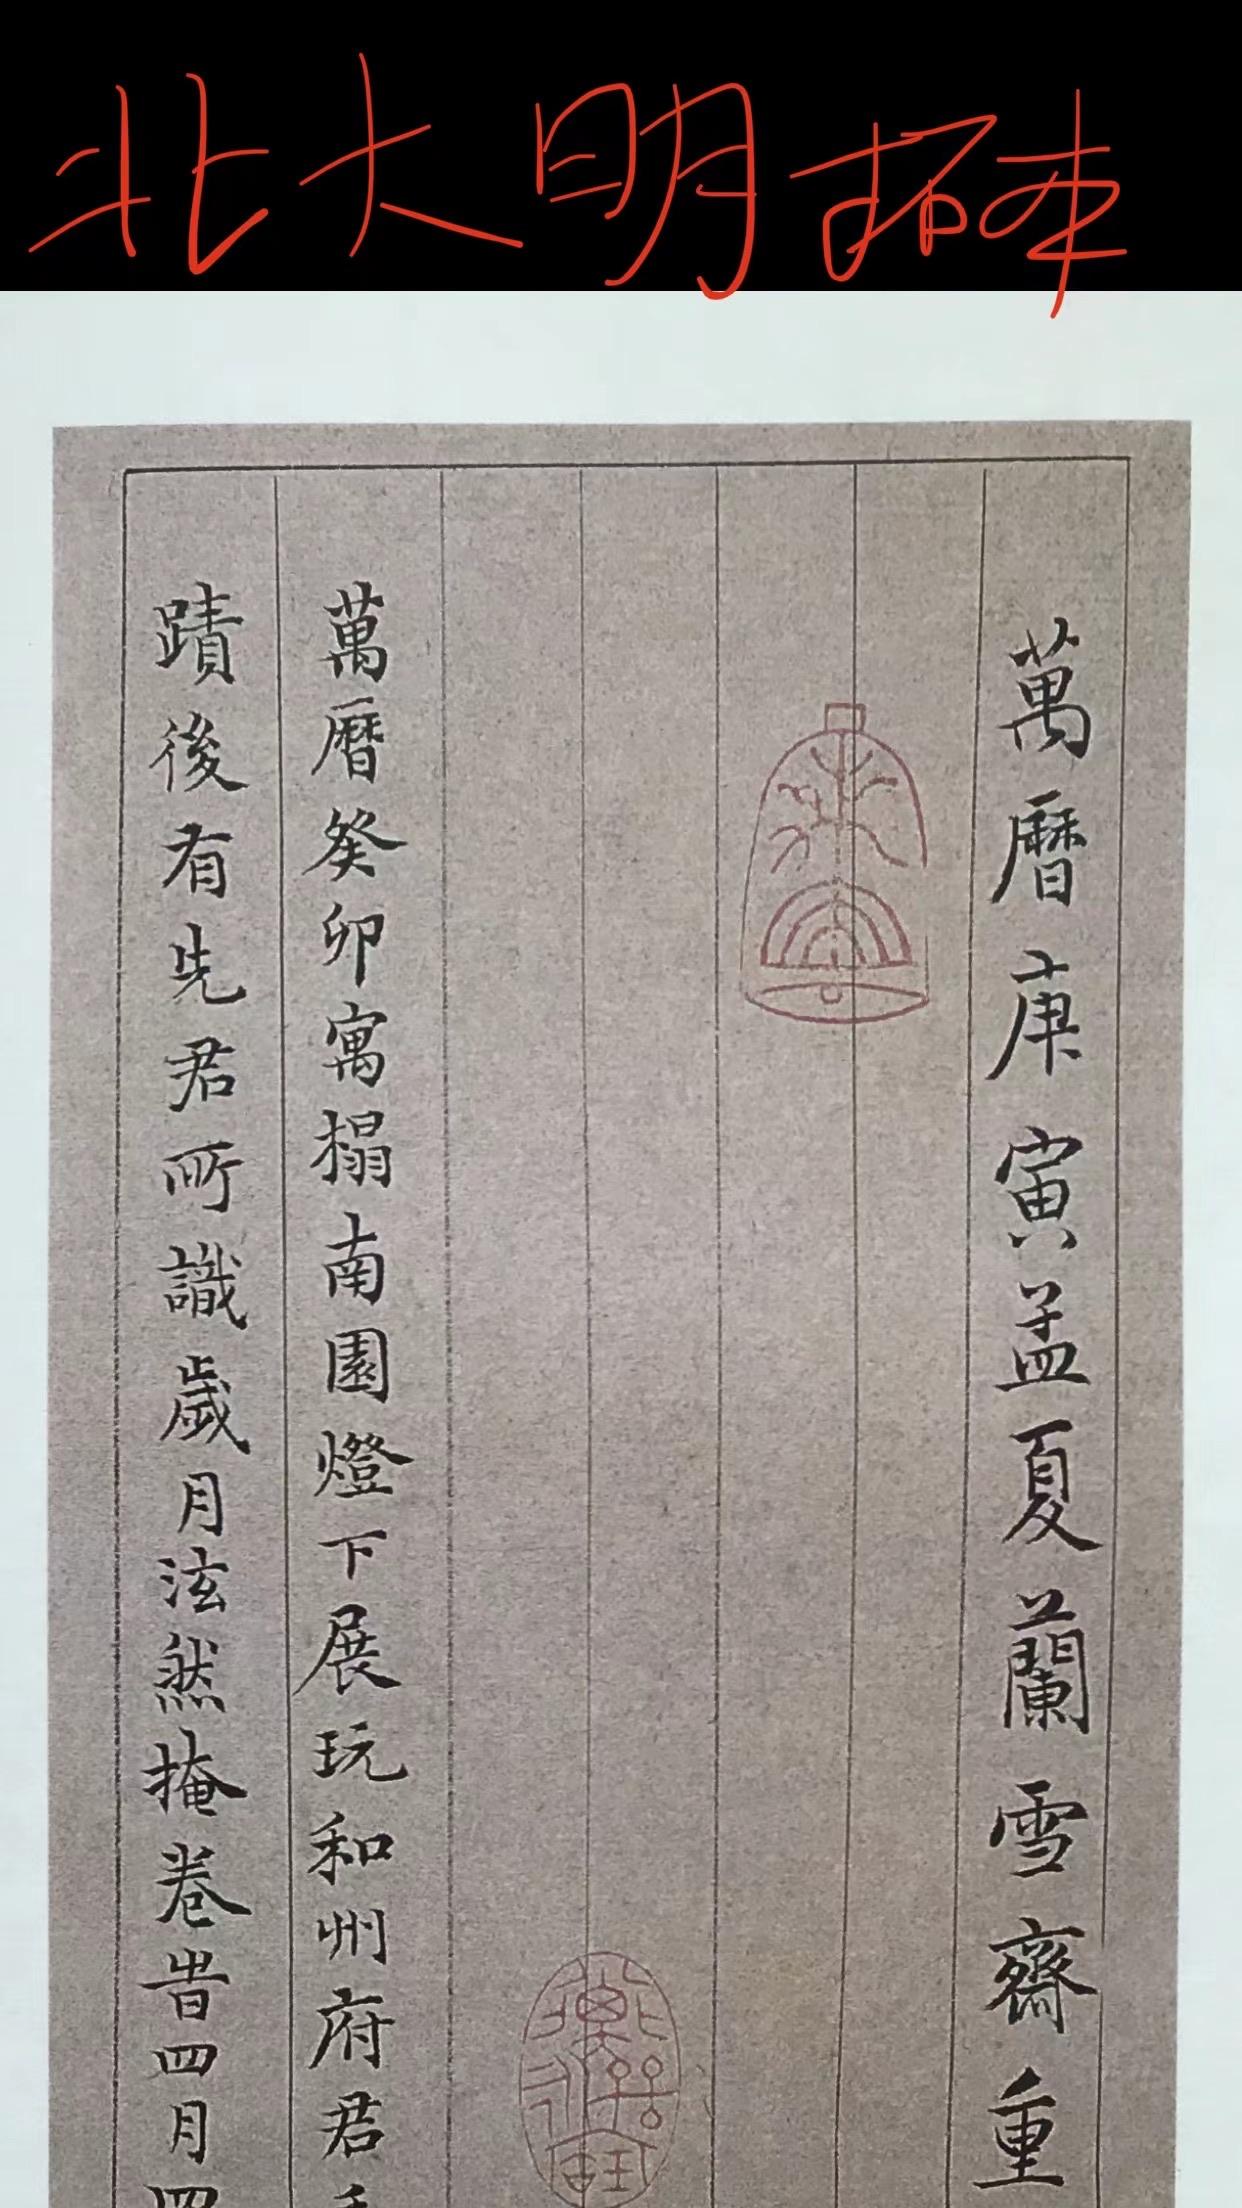 北大明拓本
萬曆庚寅孟夏蘭雪齋重
萬曆癸卯寓榻南園燈下展玩和州府君手
蹟後有先君所識歲月泫然掩卷旹四月四